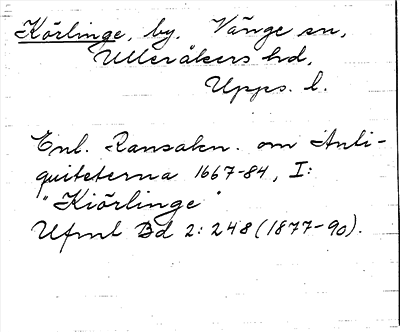 Körlinge, by. Vänge sn,
Ulleråkers hd,
Upps. l.
Enl. Ransakn. om Anti-
quiteterna 1667-84, I:
"Kiörlinge"
Ufmt Bd 2: 248 (1877-90).